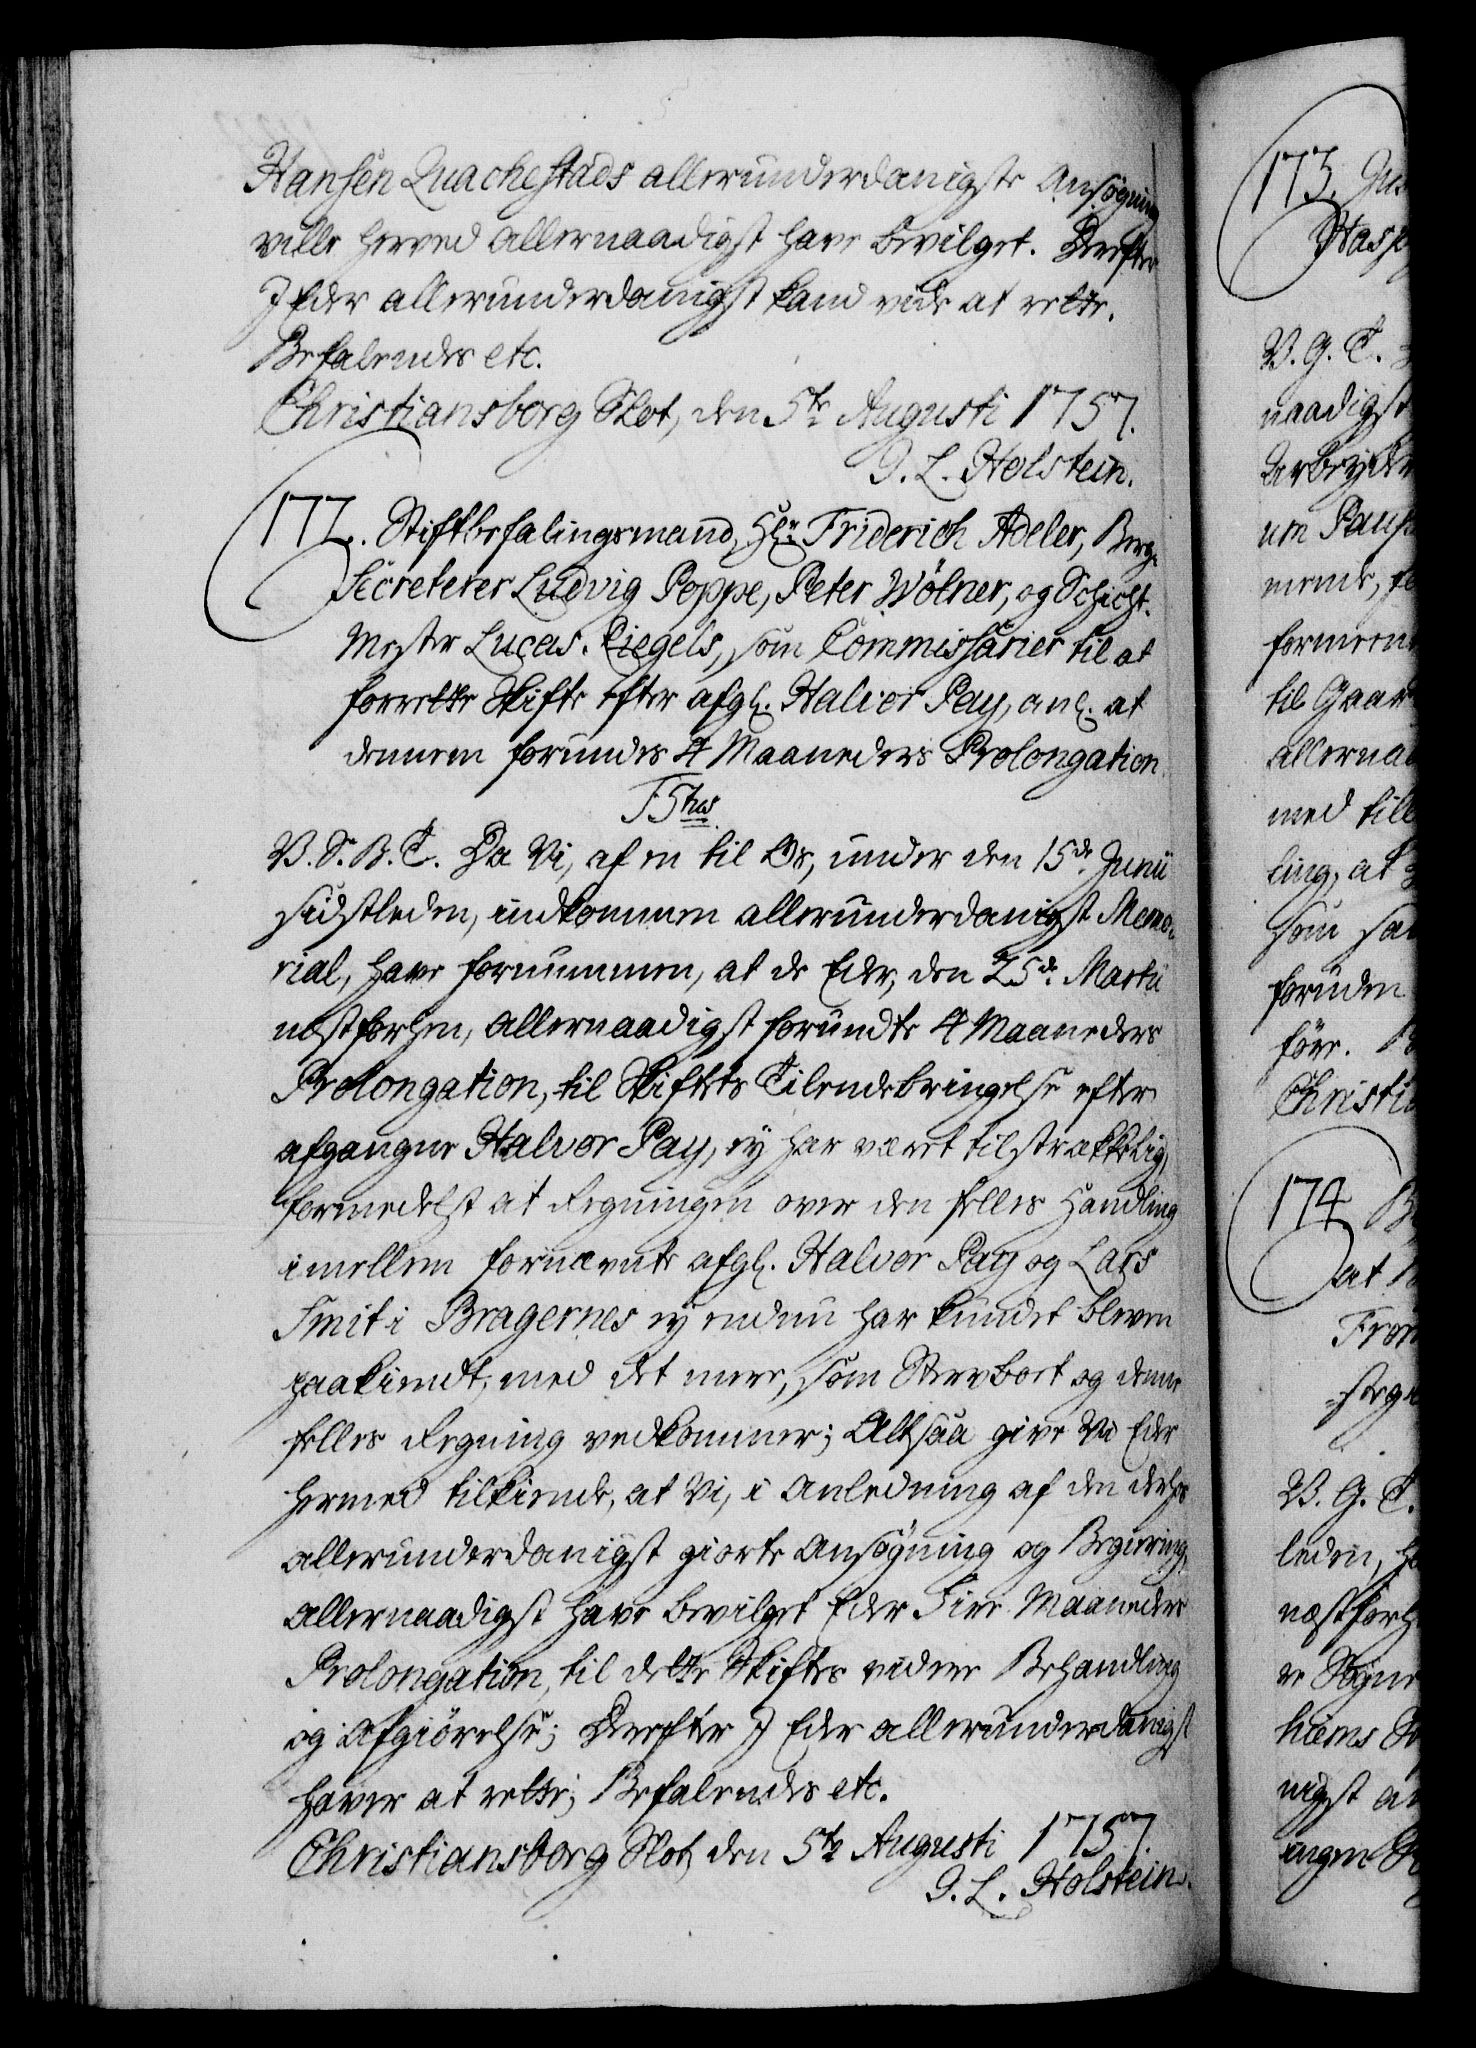 Hansen Quachestads allerunderdanigste Ansøgning
ville herved allernaadigst have bevilget. Derefter
I Eder allerunderdanigst kand vide at rette.
Befalendes etc.
Christiansborg Slot, den 5te Augusti 1757.
J. L. Holstein.
172. Stiftbefalingsmand, Hr. Friderich Adeler, Berg-
Secreterer Ludvig Poppe, Peter Wölner, og Schicht-
Mester Lucas Ziegels, som Commissarier til at
forrette Skifte efter afgl. Halvor Pay, anl. at
dennem forundes 4 Maaneders Prolongation.
V. S. B. T. Da Vi, af en til Os, under den 15de Junii
sidstleden, indkommen allerunderdanigst Memo-
rial, have fornummen, at de Eder, den 25de Martii
næstforhen, allernaadigst forundte 4 Maaneders
Prolongation, til Skiftets Tilendebringelse efter
afgangne Halvor Pay, ey har været tilstrækkelig,
formedelst at Regningen over den felles Handling
imellem fornævnte afgl. Halvor Pay og Lars
Smit i Bragernes ey endnu har kundet bleven
paakiendt, med det mere, som Stervboet og denne
felles Regning vedkommer; Altsaa give Vi Eder
hermed tilkiende, at Vi, i Anledning af den derhos
allerunderdanigst giorte Ansøgning og Begiering,
allernaadigst have bevilget Eder Fire Maaneders
Prolongation, til dette Skiftes videre Behandling
og Afgiørelse; Derefter I Eder allerunderdanigst
haver at rette; Befalendes etc.
Christiansborg Slot, den 5te Augusti 1757.
J. L. Holstein.
173.
V. G. T.
naadigst
til Gaar
med till
ling, at
som
foruden
føre.
Christia
174
at
From
V. G. T.
leden,
næstforh